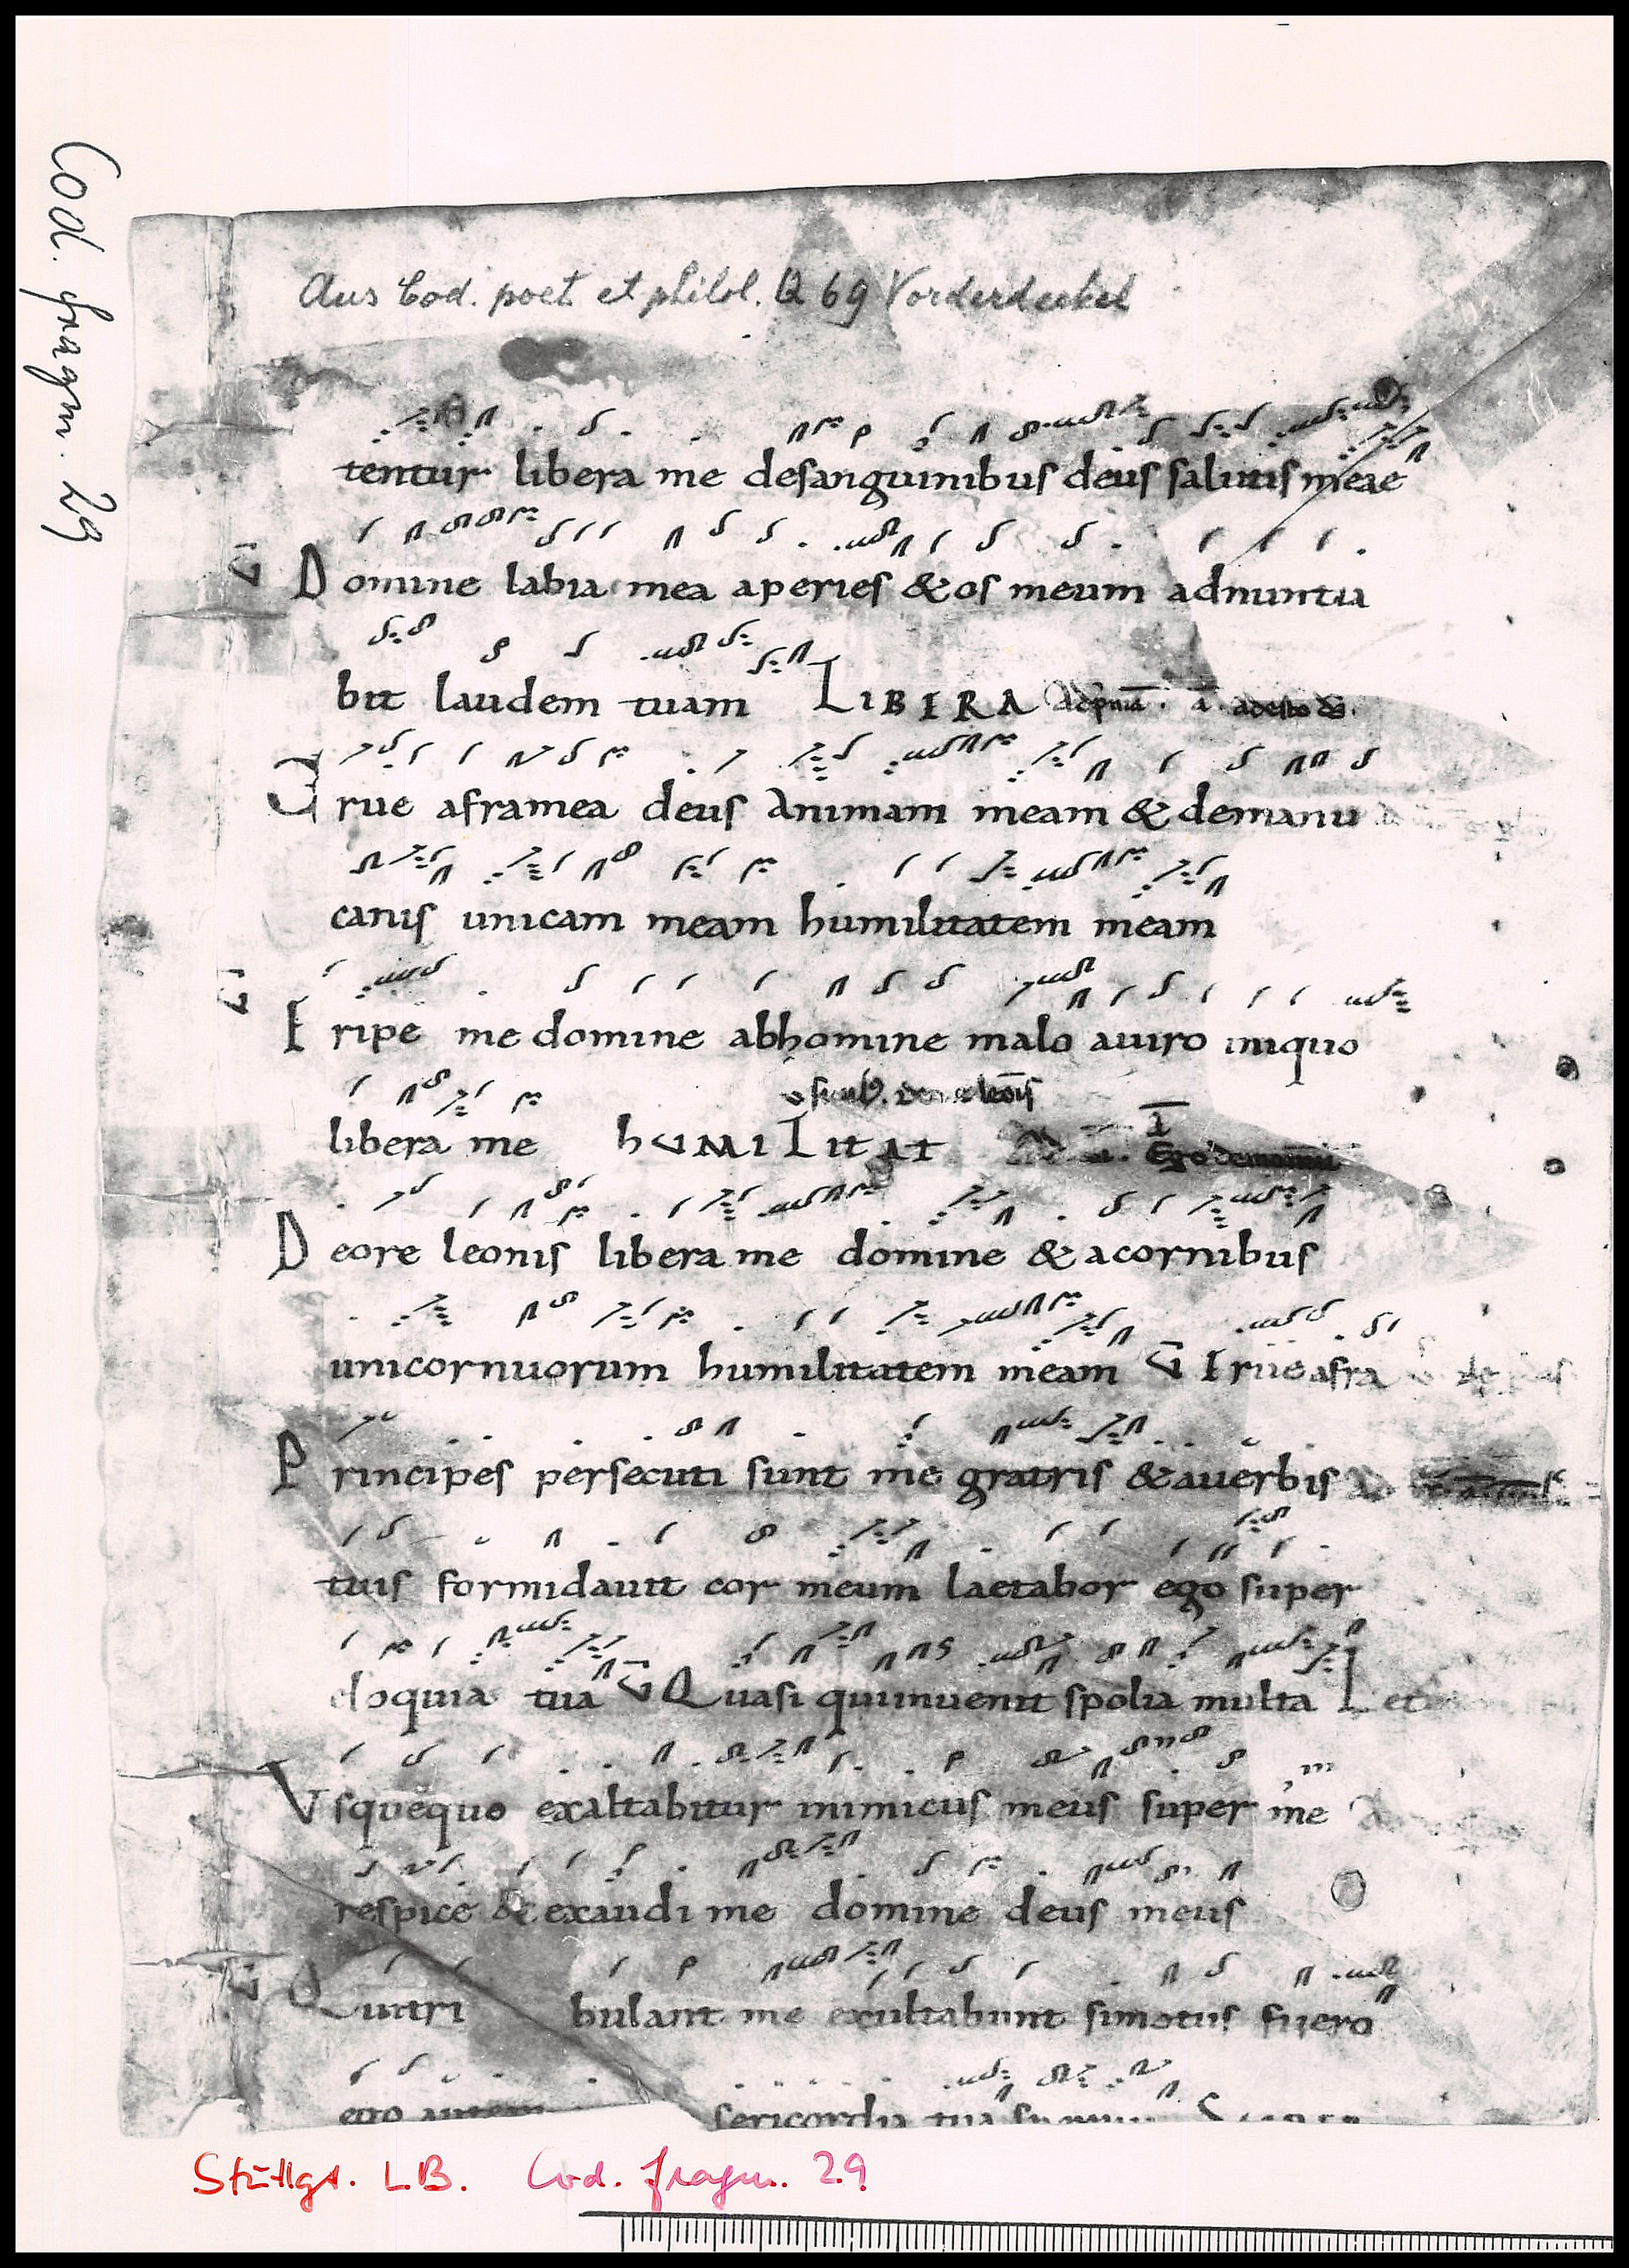 Cod. fragm. 29
Aus Cod. poet. et philol. Q 69 Vorderdeckel
tentur libera me desanguinibus deus salutis meae
V̄ Domine labia mea aperies & os meum adnuntia
bit laudem tuam LIBERA adpmā. ā. adesto ds̄.
Erue aframea deus animam meam & demanu
canis unicam meam humilitatem meam
V̄ Eripe me domine abhomine malo auiro iniquo
libera me hUMILITAT
Deore leonis libera me domine & acornibus
unicornuorum humilitatem meam V̄ Erue afra
Principes persecuti sunt me gratis & auerbis
tuis formidauit cor meum laetabor ego super
eloquia tua V̄ Quasi quiinuenit spolia multa Let
Vsquequo exaltabitur inimicus meus super me
respice & exaudi me domine deus meus
V̄ Quitri bulant me exultabunt simotus fuero
ego autem sericordia tua
Stuttgt. L.B. Cod. fragm. 29